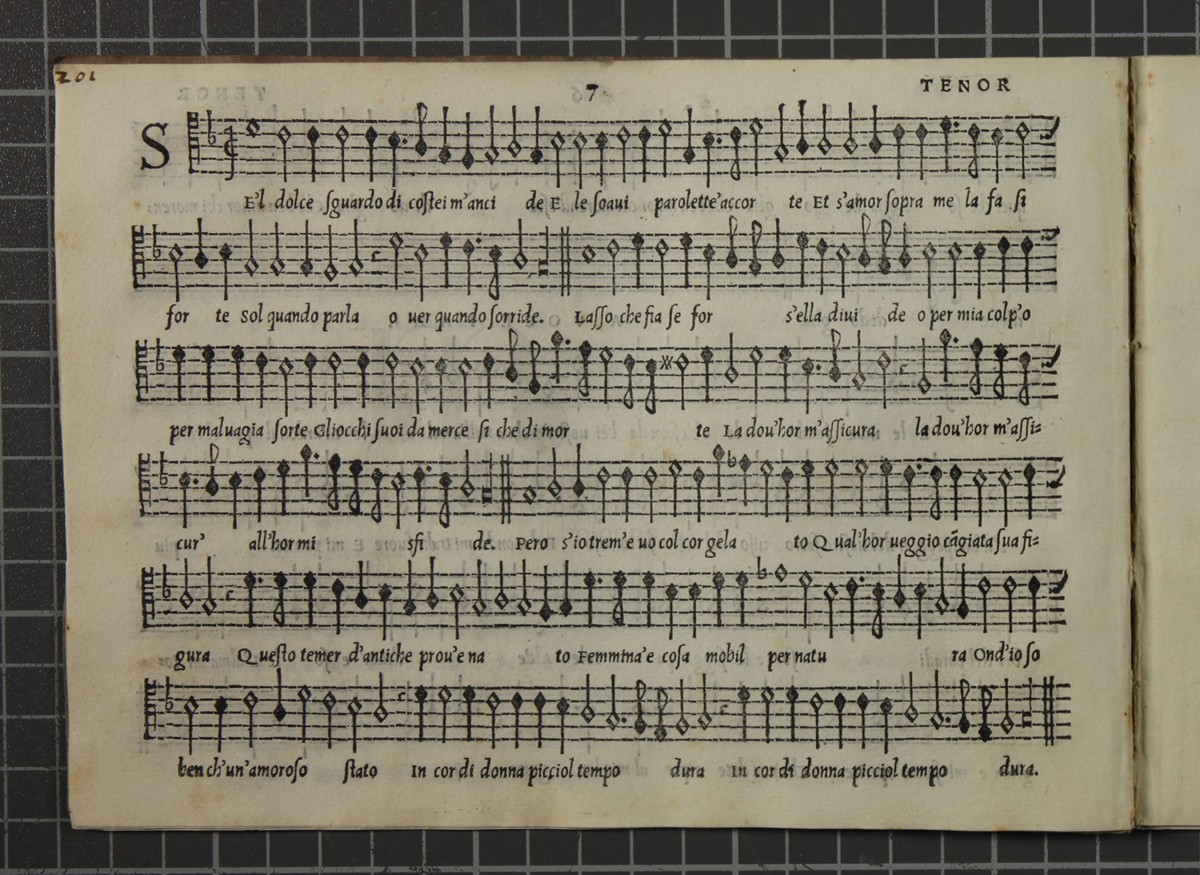 201
7 TENOR
S
E'l dolce ſguardo di coſtei m'anci de E le ſoaui parolette'accor te Et s'amor ſopra me la fa ſi
for te Sol quando parla o uer quando ſorride. Laſſo che fia ſe for s'ella diui de o per mia colp'o
per maluagia ſorte Gliocchi ſuoi da merce ſi che di mor te La dou'hor m'aſſicura la dou'hor m'aſſi=
cur' all'hor mi sfi de. Pero s'io trem'e uo col cor gela to Qual'hor ueggio cāgiata ſua fi=
gura Queſto temer d'antiche prou'e na to Femmina'e coſa mobil per natu ra Ond'io ſo
ben ch'un'amoroſo ſtato In cor di donna picciol tempo dura In cor di donna picciol tempo dura.